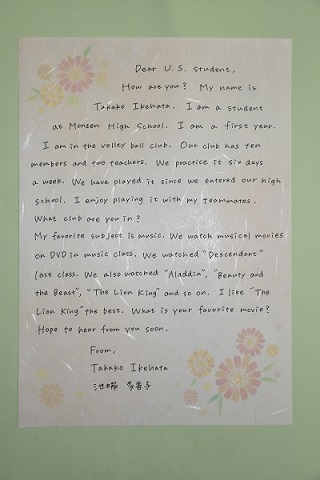 Dear U.S. student,
How are you? My name is
Takako Ikehata. I am a student
at Monzen High School. I am a first year.
I am in the volley ball club. Our club has ten
members and two teachers. We practice it six days
a week. We have played it since we entered our high
school. I enjoy playing it with my teammates.
What club are you in?
My favorite subject is music. We watch musical movies
on DVD in music class. We watched "Descendant"
last class. We also watched "Aladdin", "Beauty and
the Beast", "The Lion King" and so on. I like "The
Lion King" the best. What is your favorite movie?
Hope to hear from you soon.
From,
Takako Ikehata
池端 多香子